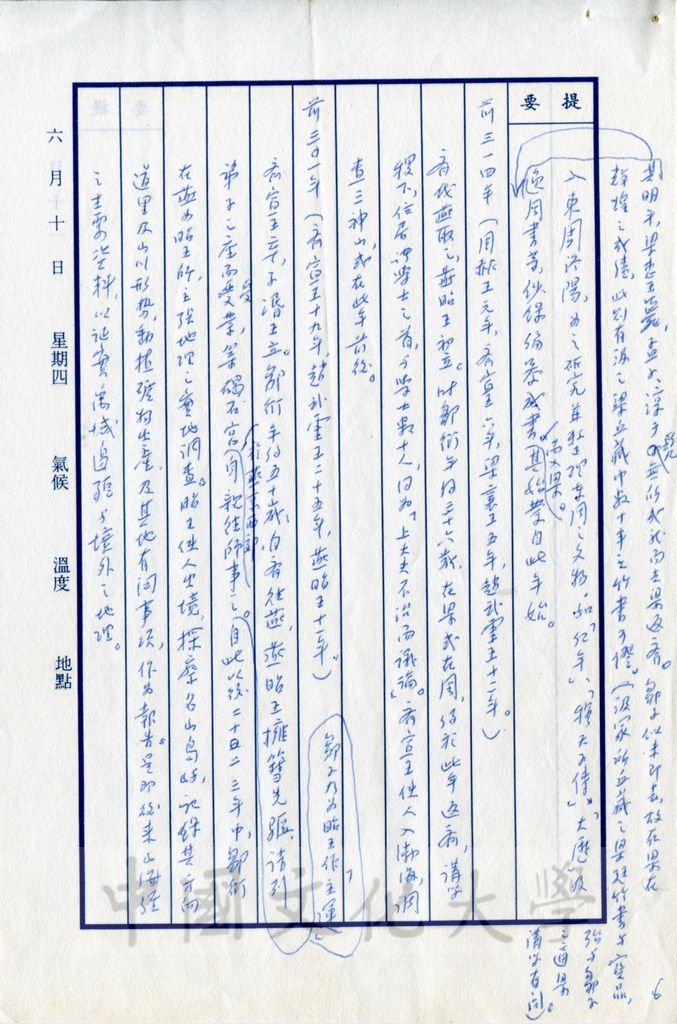 6
其明年,梁惠王薨,孟子、淳于髡無所或試而去梁返齊。鄒子似未即去,故在梁有
輝煌之成績,此則有汲冢之梁丘藏中數十車之竹書可證。(汲冢所丘藏之梁廷竹書与寶品,
入東周洛陽,為之研究並整理東周之文物。如「紀年」、「穆天子傳」、「大曆」及
之過梁
有關)
提要
前三一四年(周赧王元年,齊宣王六年,梁襄王五年,趙武靈王十二年。)
齊伐燕取之,燕昭王初立。时鄒衍年约三十六歲,在梁或在周,约於此年返齊,講學
稷下,位居諸學士之首,与學士數十人,因為「上大夫不治而議論」。齊宣王使人入渤海,調
查三神山,或在此年前後。
前三〇一年(齊宣王十九年,趙武靈王二十五年,燕昭王十一年。)
鄒子乃為昭王作「主運」
齊宣王卒,子湣王立。鄒衍年约五十歲,自齊往燕,燕昭王擁篲先驅,請列
弟子之座而受業,築碣石宮,身親往師事之。自此以後二十二、三年中,鄒衍
在燕為昭王師,主張地理之實地調查。昭王使人出境,探察名山島嶼,記錄其方向
道里及山川形勢,動植礦物出產,及其他有關事項,作為報告。是即後來山海經
之主要資料,以證實禹域邊疆与境外之地理。
六月十一日 星期四 氣候 溫度 地點
中國文化大學